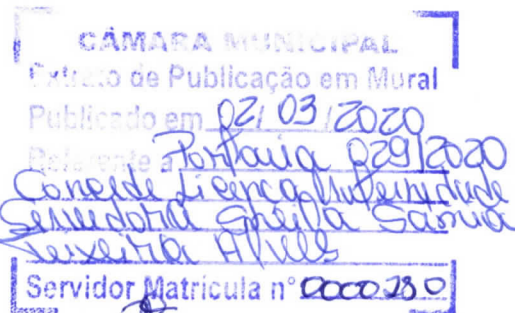 CÂMARA MUNICIPAL
Extrato de Publicação em Mural
Publicado em 02/03/2020
Referente a Portaria 029/2020
Concede Licença Maternidade
Servidora Sheila Samia
Teixeira Alves
Servidor Matrícula nº